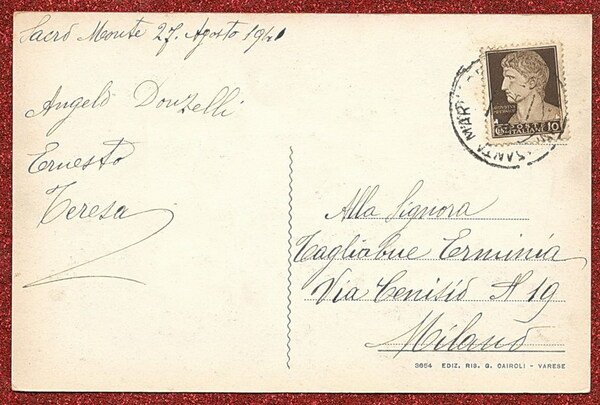 Sacro Monte 27. Agosto 1941
Angelo Donzelli
Ernesto
Teresa
POSTE
ITALIANE
CENT. 10
SANTA MARIA
Alla Signora
Tagliabue Erminia
Via Cenisio N 19
Milano
3654 EDIZ. RIS. G. CAIROLI - VARESE